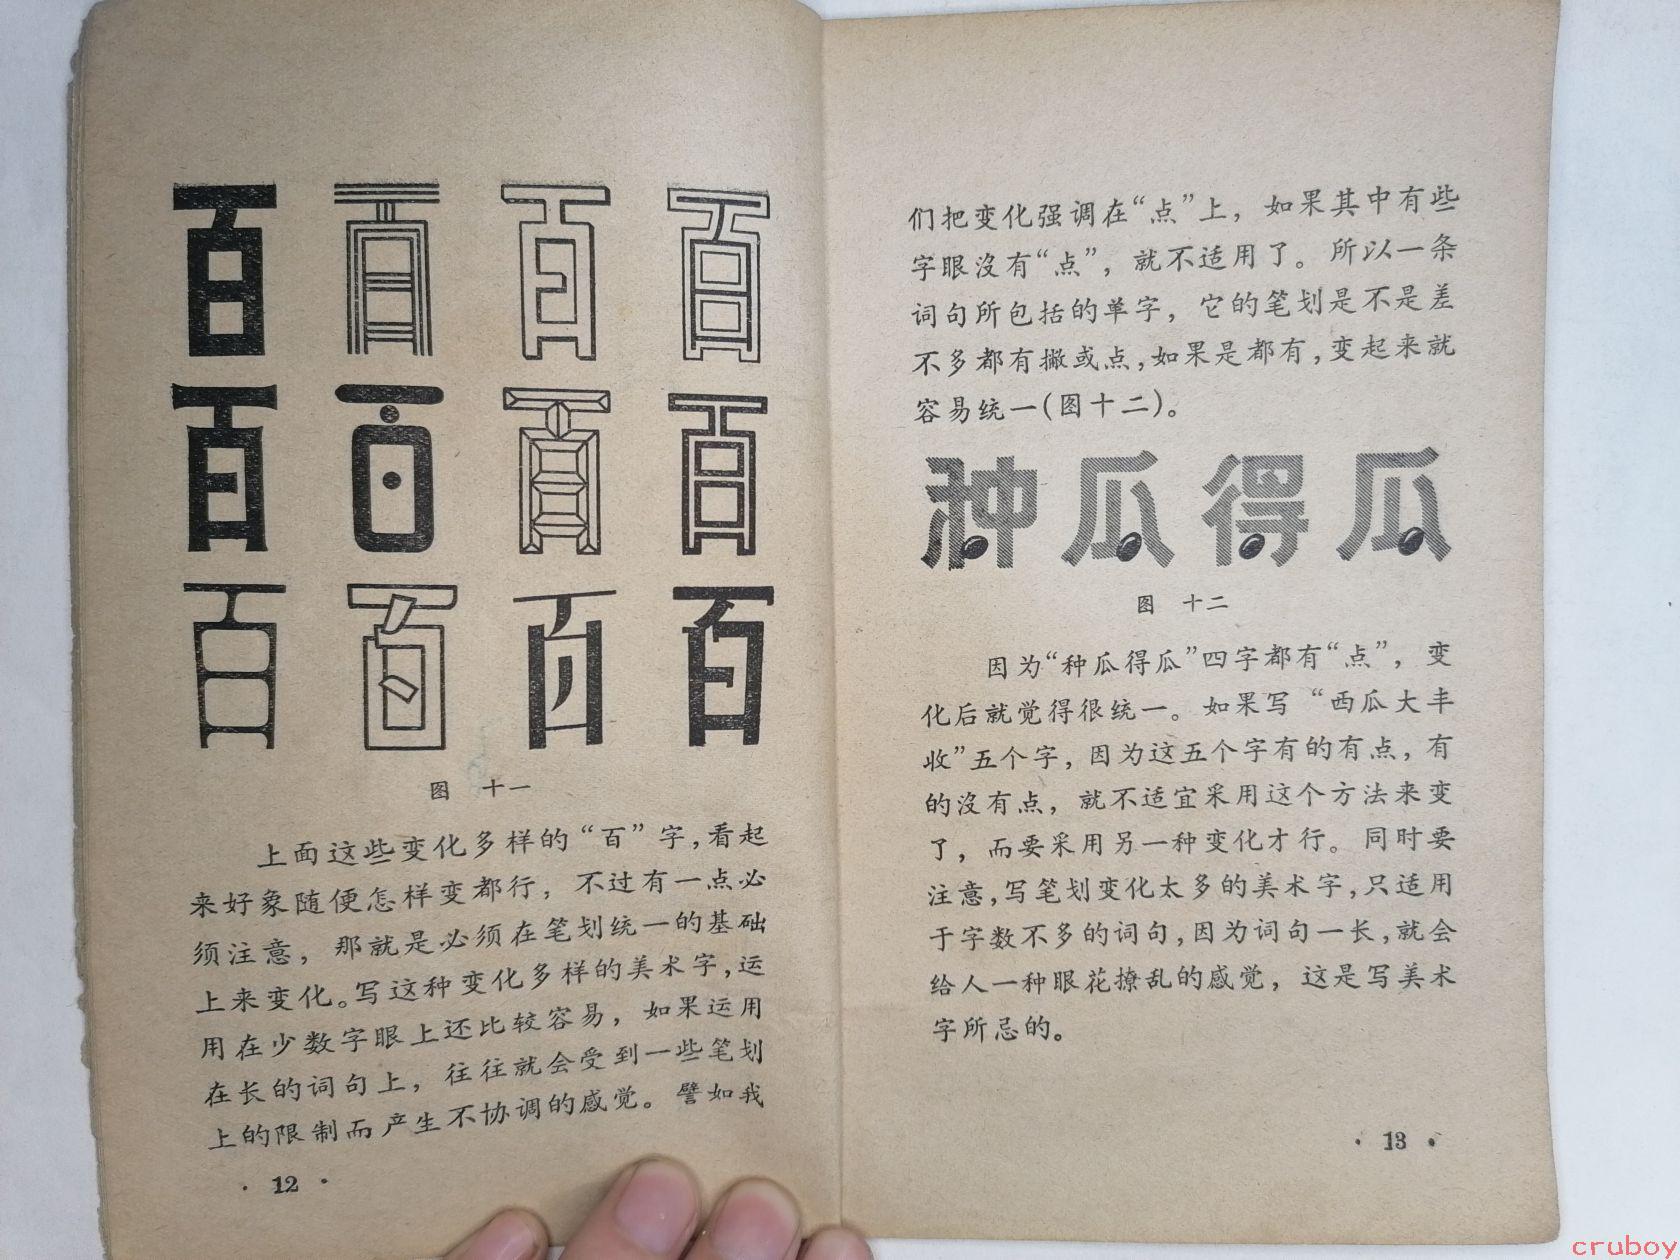 百 百 百 百
百 百 百 百
百 百 百 百
图 十一
上面这些变化多样的“百”字,看起
来好象随便怎样变都行，不过有一点必
须注意，那就是必须在笔划统一的基础
上来变化。写这种变化多样的美术字,运
用在少数字眼上还比较容易，如果运用
在长的词句上，往往就会受到一些笔划
上的限制而产生不协调的感觉。譬如我
· 12 ·
们把变化强调在“点”上，如果其中有些
字眼沒有“点”，就不适用了。所以一条
词句所包括的单字，它的笔划是不是差
不多都有撇或点,如果是都有,变起来就
容易统一(图十二)。
种瓜得瓜
图 十二
因为“种瓜得瓜”四字都有“点”，变
化后就觉得很统一。如果写“西瓜大丰
收”五个字，因为这五个字有的有点，有
的沒有点，就不适宜采用这个方法来变
了，而要采用另一种变化才行。同时要
注意,写笔划变化太多的美术字,只适用
于字数不多的词句,因为词句一长,就会
给人一种眼花撩乱的感觉，这是写美术
字所忌的。
· 13 ·
cruboy